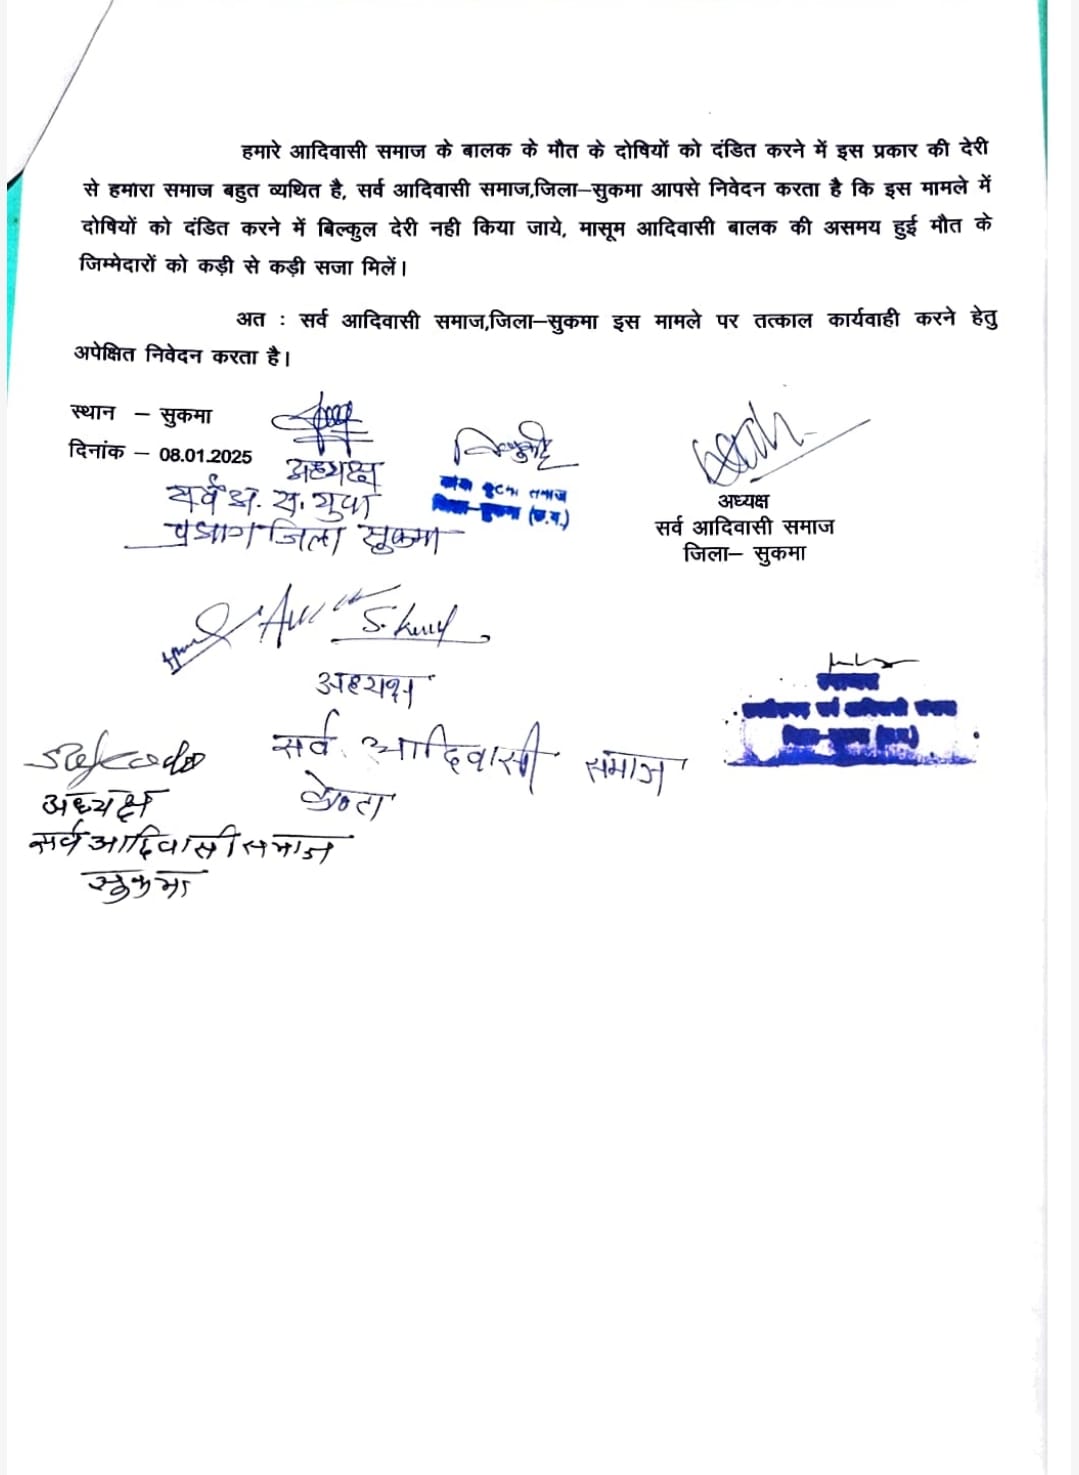 हमारे आदिवासी समाज के बालक के मौत के दोषियों को दंडित करने में इस प्रकार की देरी
से हमारा समाज बहुत व्यथित है, सर्व आदिवासी समाज,जिला–सुकमा आपसे निवेदन करता है कि इस मामले में
दोषियों को दंडित करने में बिल्कुल देरी नही किया जाये, मासूम आदिवासी बालक की असमय हुई मौत के
जिम्मेदारों को कड़ी से कड़ी सजा मिलें।
अत : सर्व आदिवासी समाज,जिला–सुकमा इस मामले पर तत्काल कार्यवाही करने हेतु
अपेक्षित निवेदन करता है।
स्थान – सुकमा
दिनांक – 08.01.2025
अध्यक्ष
सर्व आ. स. युवा
प्रभाग जिला सुकमा
समाज
जिला–सुकमा (छ.ग.)
अध्यक्ष
सर्व आदिवासी समाज
जिला– सुकमा
अध्यक्ष
सर्व आदिवासी समाज
कोण्टा
अध्यक्ष
सर्व आदिवासी समाज
सुकमा